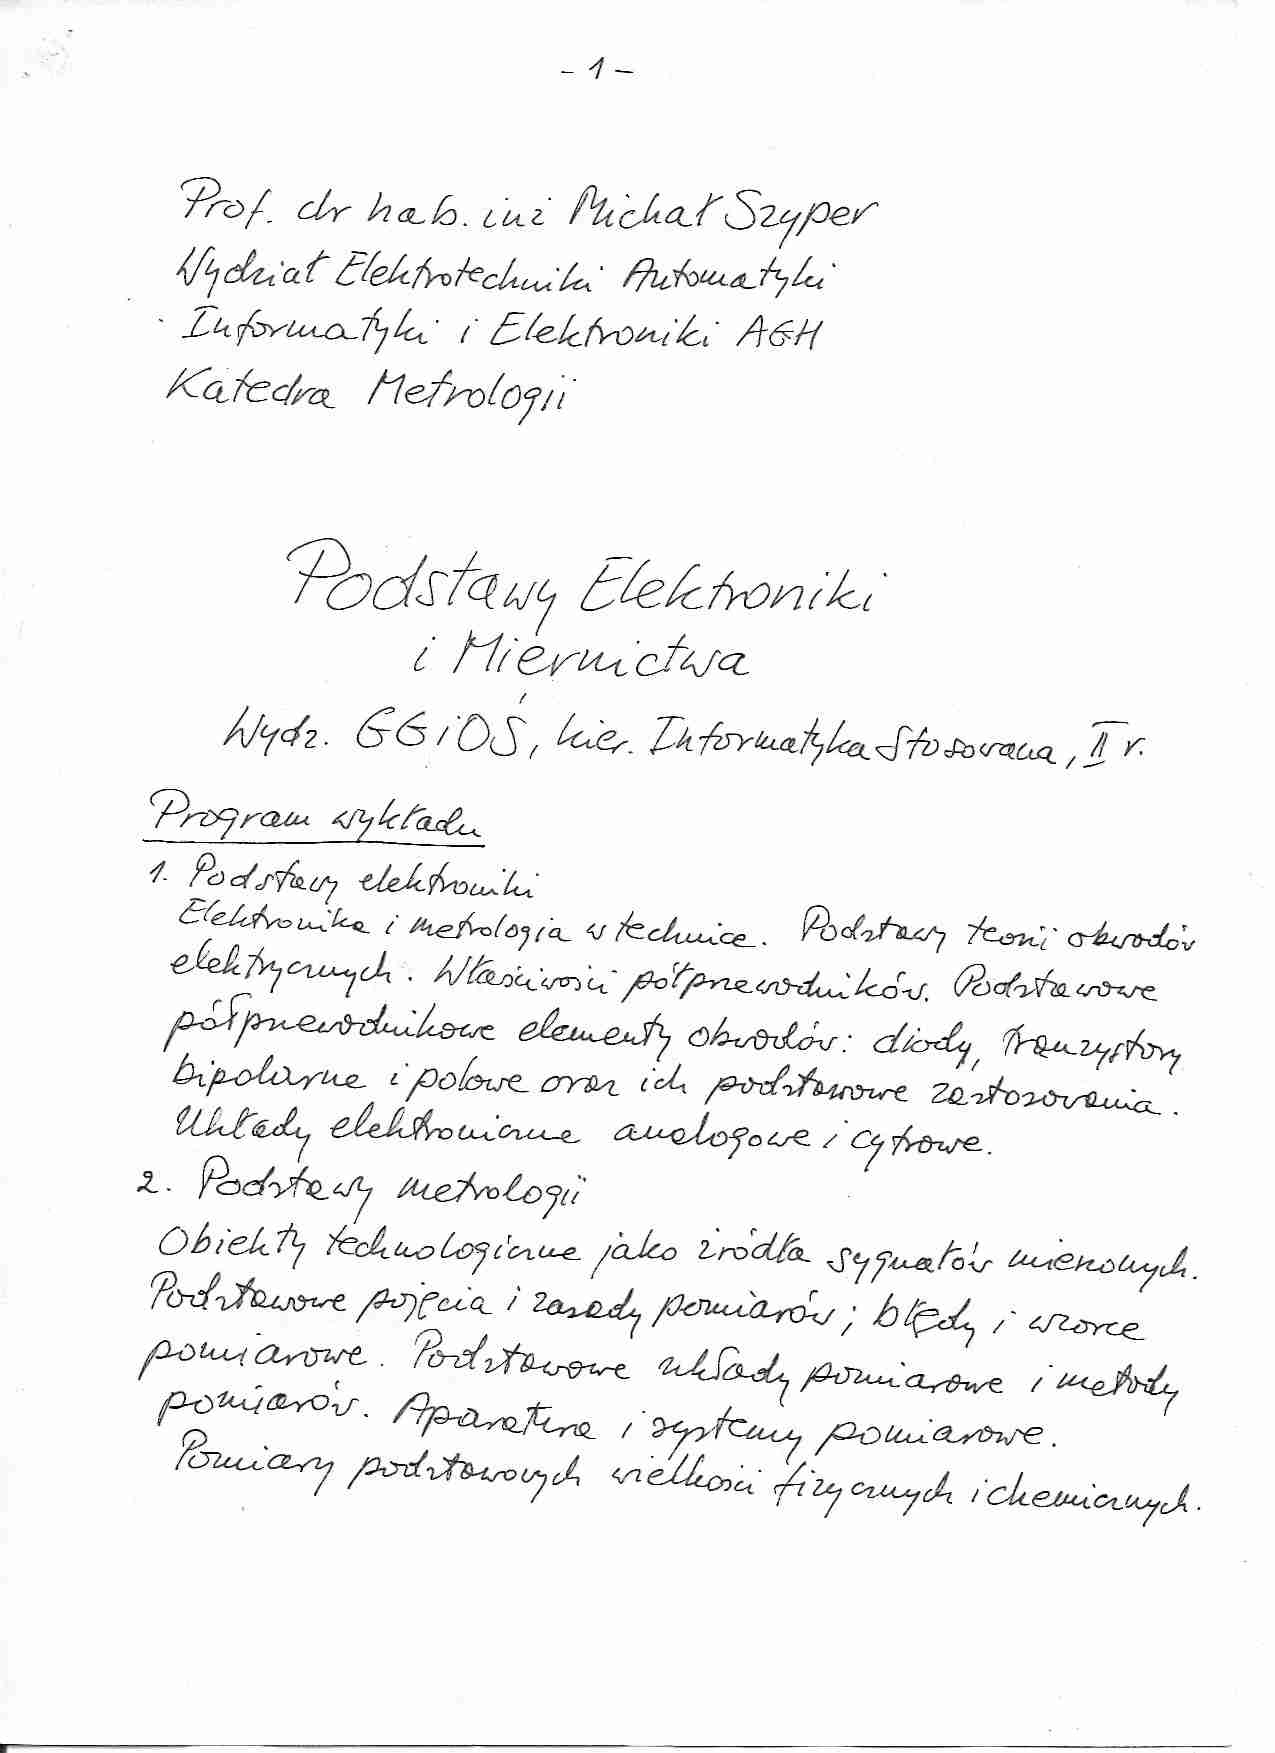 - 1 -
Prof. dr hab. inż Michał Szyper
Wydział Elektrotechniki Automatyki
Informatyki i Elektroniki AGH
Katedra Metrologii
Podstawy Elektroniki
i Miernictwa
Wydz. GGiOŚ, kier. Informatyka Stosowana, II r.
Program wykładu
1. Podstawy elektroniki
Elektronika i metrologia w technice. Podstawy teorii obwodów
elektrycznych. Właściwości półprzewodników. Podstawowe
półprzewodnikowe elementy obwodów: diody, tranzystory
bipolarne i polowe oraz ich podstawowe zastosowania.
Układy elektroniczne analogowe i cyfrowe.
2. Podstawy metrologii
Obiekty technologiczne jako źródła sygnałów mierzonych.
Podstawowe pojęcia i zasady pomiarów; błędy i wzorce
pomiarowe. Podstawowe układy pomiarowe i metody
pomiarów. Aparatura i systemy pomiarowe.
Pomiary podstawowych wielkości fizycznych i chemicznych.